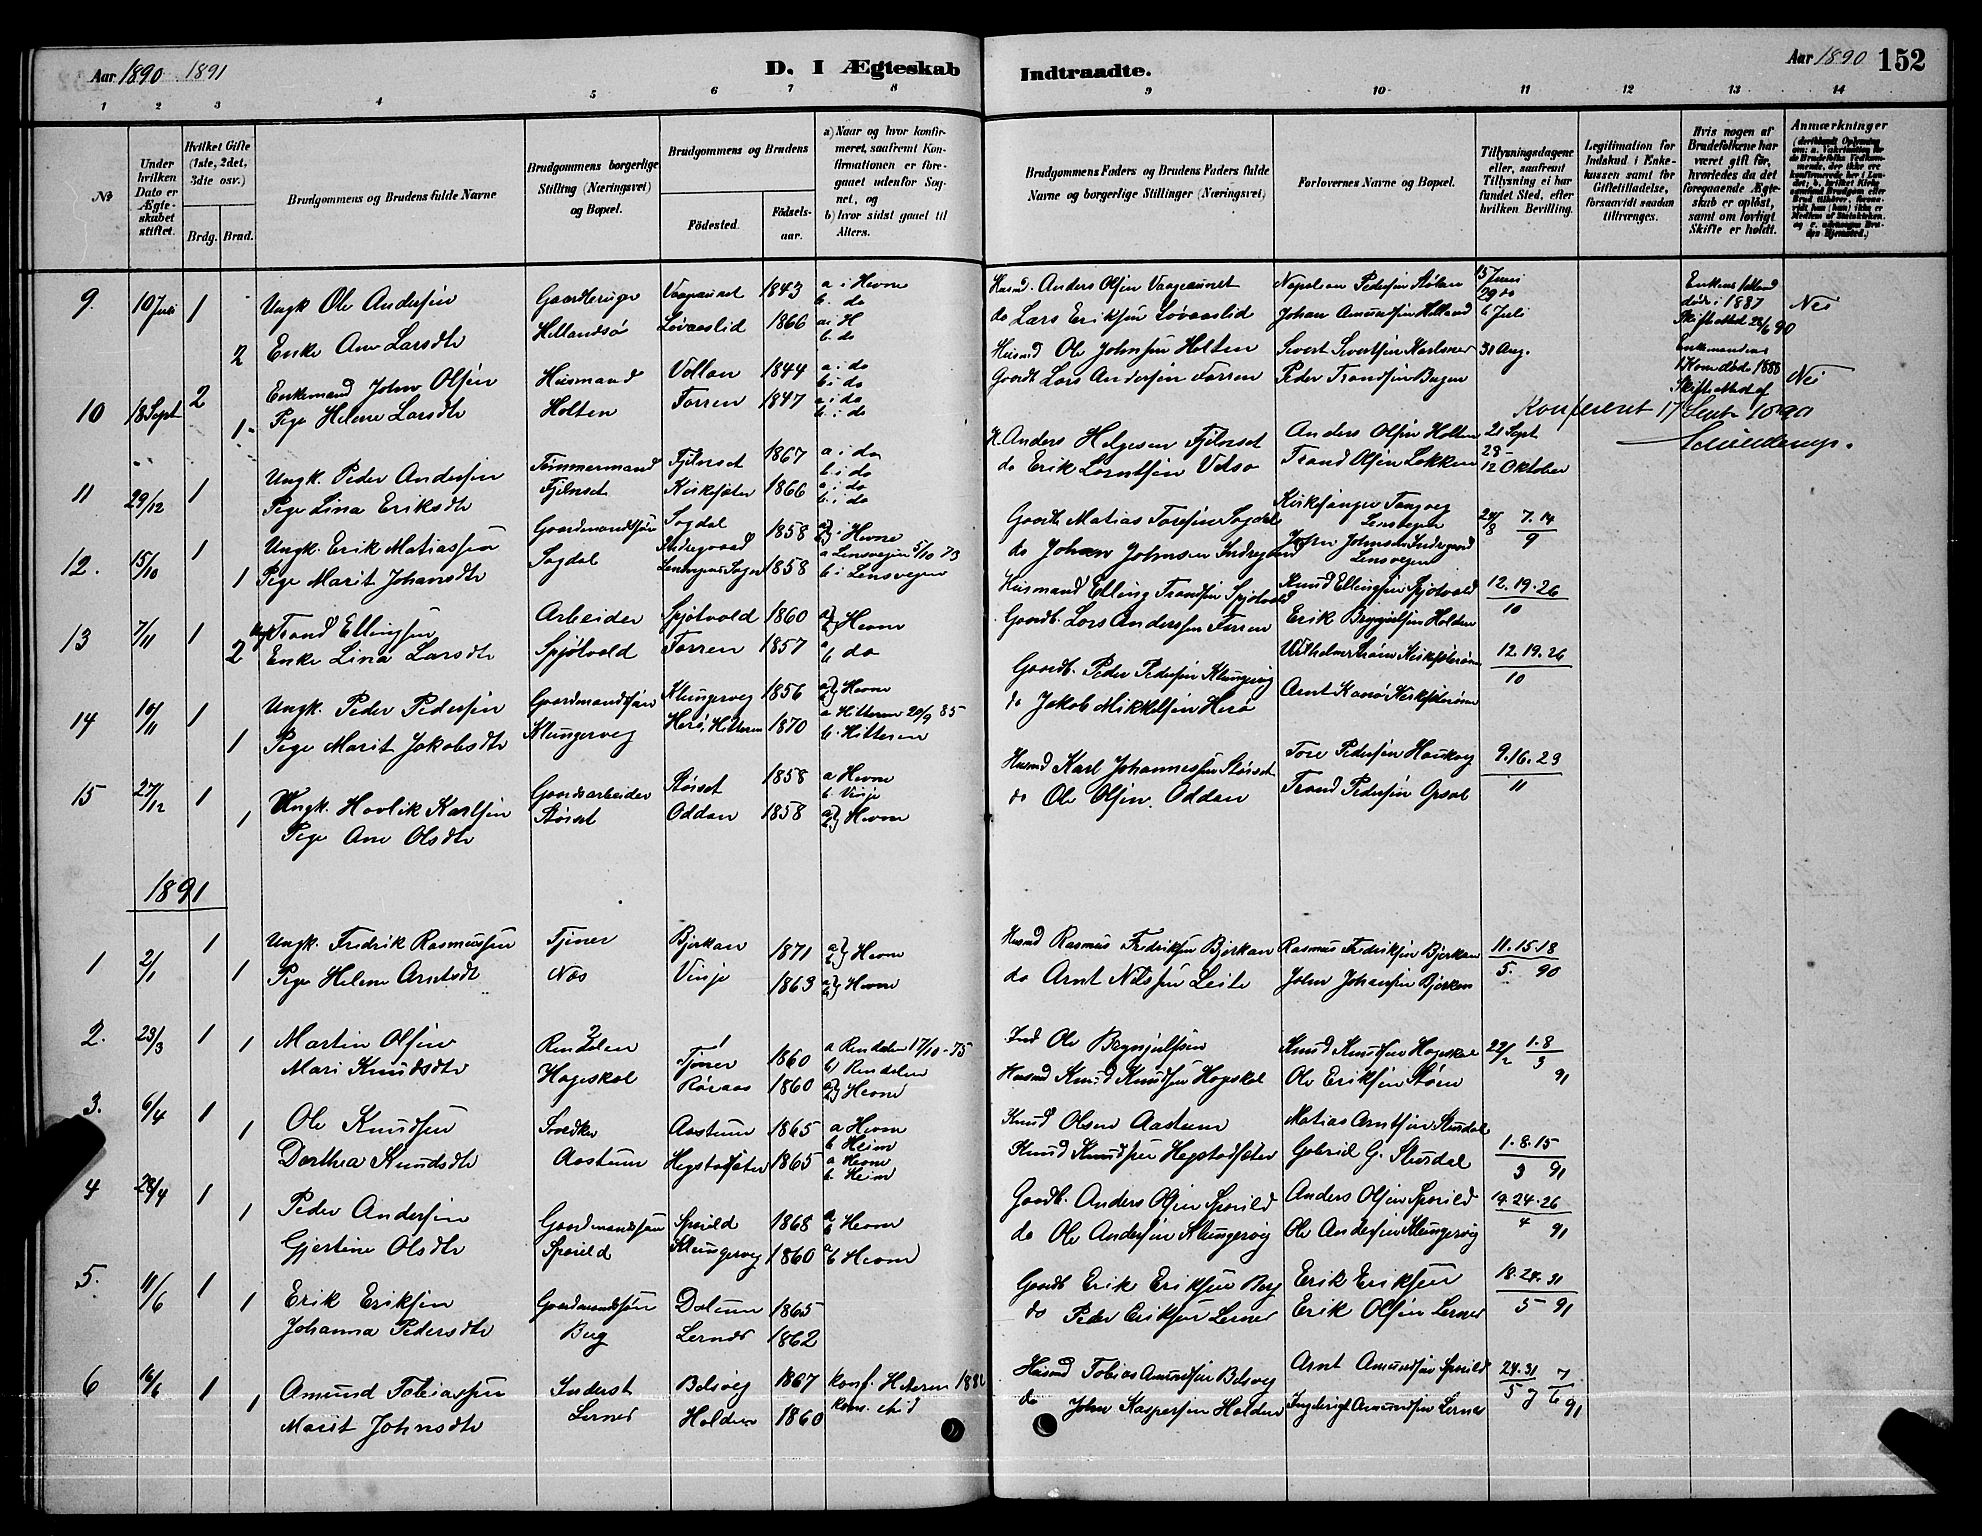 Aar 1890 1891
D. I Ægteskab Indtraadte.
Aar 1890 152
1 2 3 4 5 6 7 8 9 10 11 12 13 14
№
Under hvilken Dato er Ægteskabet stiftet.
Hvilket Gifte (1ste, 2det, 3die osv.)
Brdg. Brud.
Brudgommens og Brudens fulde Navne
Brudgommens borgerlige Stilling (Næringsvei) og Bopæl.
Brudgommens og Brudens
Fødested.
Fødselsaar.
a) Naar og hvor konfirmeret, saafremt Konfirmationen er foregaaet udenfor Sognet, og
b) hvor sidst gaaet til Alters.
Brudgommens Faders og Brudens Faders fulde Navne og borgerlige Stillinger (Næringsvei)
Forlovernes Navne og Bopæl.
Tillysningsdagene eller, saafremt Tillysning ei har fundet Sted, efter hvilken Bevilling.
Legitimation for Indskud i Enkekassen samt for Giftetilladelse, forsaavidt saadan tiltrænges.
Hvis nogen af Brudefolkene har været gift før, hvorledes da det foregaaende Ægteskab er opløst, samt om lovligt Skifte er holdt.
Anmærkninger
9. 10 Juli 1 Ungk Ole Andersen Gaardbruger Vaagaunet 1843 a i Hevne b. do Husmd. Anders Olsen Vaagaunet Napoleon Pedersen Stølan 15 Juni 29 do
2 Enke Ane Larsdtr Hellandsø Løvaaslid 1866 a i H b. do do Lars Eriksen Løvaaslid Johan Amundsen Helland 6 Juli
døde i 1887 Skifteattest 28/6 90 Nei
10 18 Sept 2 Enkemand John Olsen Husmand Vollan 1844 a i do b i do Husmd Ole Johnsen Holten Sivert Sivertsen 31 Aug.
1 Pige Helene Larsdtr Holten Forren 1847 a i do b i do Gaardb Lars Andersen Forren Peder Trondsen Bugen
Enkemandens Kone døde 1888 Skifteattest af Nei
Konfereret 17 Sept 1890
11 29/12 1 Ungk. Peder Andersen Tømmermand Fjelnset 1867 a i do b i do H. Anders Helgesen Fjelnset Anders Olsen Holten 21 Sept
Pige Lina Eriksdtr Fjelnset Kirksæter 1866 a i do b i do do Erik Lorntsen Vidsø Trond Olsen Løkken 28 - 12 Oktober
12. 15/10 1 Ungk. Erik Matiassen Gaardmandssøn Sogdal 1858 a b i Hevne Gaardb Matias Toresen Sogdal Kirksanger Tangvog Lensvegen 24/8 7.14/9
1 Pige Marit Johansdtr Sogdal Indregaard Lensvegens Sogn 1858 a Lensvegen 5/10 73 b i Lensvegen do Johan Johnsen Indregaard John Johnsen Indregaard Lensvegen
13 7/11 1 Ungk Trond Ellingsen Arbeider Spjøtvold 1860 a b Hevne Husmand Elling Trondsen Spjøtvold Knud Ellingsen Spjøtvold 12.19.26/10
2 Enke Lina Larsdtr Spjøtvold Forren 1857 a b do Gaardb. Lars Anderssen Forren Erik Brynjulfsen Holden
14 10/11 1 Ungk. Peder Pedersen Gaardmandssøn Klungervog 1856 a b Hevne Gaardb. Peder Pedersen Klungervog Vilhelm Strøm Kirksæterøren 12.19.26/10
1 Pige Marit Jakobsdtr Klungervog Herø, Hitteren 1870 a Hitteren 20/9 85 b. Hitteren do Jakob Mikkelsen Herø Arnt Kanø Kirksæterøren
15 27/12 1 Ungk. Hovlik Karlsen Gaardarbeider Størset 1858 a Hevne b. Vinje Husmd Karl Johannessen Størset Tore Pedersen Haukvog 9.16.23/11
1 Pige Ane Olsdtr Størset Oddan 1858 a b Hevne do Ole Olsen. Oddan Trond Pedersen
1891
1 2/1 1 Ungk. Fredrik Rasmussen Tjener Bjerkan 1871 a b Hevne Husmd Rasmus Fredriksen Bjerkan Rasmus Fredriksen Bjerkan 11.15.18
1 Pige Helene Arntsdt Næs Vinje 1863 a b Hevne do Arnt Nilssen Leite John Johansen Bjerken 5. 90
2. 23/3 1 1 Martin Olsen Rendalen Tjener 1860 a Rendalen 17/10-75 b) Rendalen Ind Ole Brynjulfsen Knud Knudsen Hageskal 22/2 1.8/3 91
Mari Knudsdtr Hageskal Røraas 1860 a b Hevne Husmd Knud Knudsen Hageskal Ole Eriksen Støren
3. 6/4 1 1 Ole Knudsen Snedker Aastum 1865 a Hevne b Heim Knud Olsen Aastum Matias Arntsen Stusdal
Dorthea Knudsdtr Aastum Hegstadsæter 1865 a Hevne b. Heim Knud Knudsen Hegstadsæter Gabriel G. Stusdal 1.8.15/3 91
4 28/4 1 1 Peder Andersen Gaardmandssøn Sporild 1868 a b Hevne Gaardb. Anders Olsen Sporild Anders Olsen Sporild 19.24.26
Gjertine Olsdtr Sporild Klungervog 1860 a b Hevne do Ole Andersen Klungervog Ole Andersen Klungervog 4 91
5. 11/6 1 1 Erik Eriksen Gaardmandssøn Dolum 1865 Gaardb Erik Eriksen Berg Erik Eriksen 18.24.31
Johanna Pedersdtr Berg Lernes 1862 do Peder Eriksen Lernes Erik Olsen Lernes 5 91
6 16/6 1 1 Amund Tobiassen Inderst Belsvog 1867 konf. Hiteren 188 Husmd Tobias Amundsen Belsvog Arnt Amundsen Sporild 24.31/5 7/6
Marit Johnsdtr Lernes Holden 1860 do John Kaspersen Holden Ingebrigt Amundsen Lernes 91